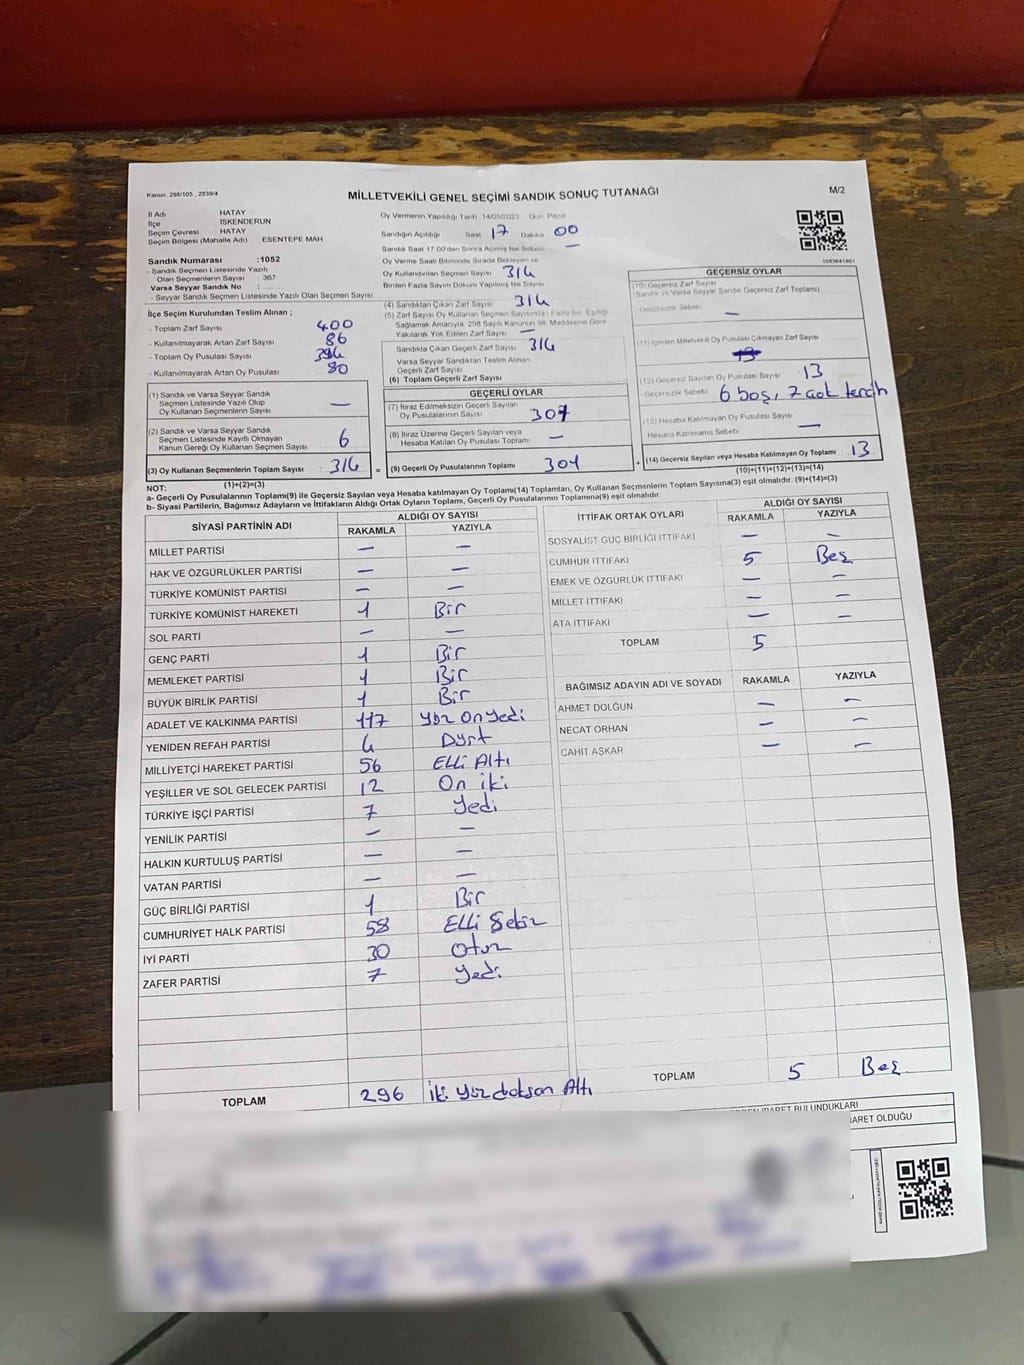 Kanun, 298/105 , 2839/4
MİLLETVEKİLİ GENEL SEÇİMİ SANDIK SONUÇ TUTANAĞI
M/2
İl Adı HATAY
İlçe İSKENDERUN
Seçim Çevresi HATAY
Seçim Bölgesi (Mahalle Adı) ESENTEPE MAH
Sandık Numarası :1052
- Sandık Seçmen Listesinde Yazılı
Olan Seçmenlerin Sayısı : 367
Varsa Seyyar Sandık No :
- Seyyar Sandık Seçmen Listesinde Yazılı Olan Seçmen Sayısı
İlçe Seçim Kurulundan Teslim Alınan ;
- Toplam Zarf Sayısı 400
- Kullanılmayarak Artan Zarf Sayısı 86
- Toplam Oy Pusulası Sayısı
- Kullanılmayarak Artan Oy Pusulası 80
(1) Sandık ve Varsa Seyyar Sandık
Seçmen Listesinde Yazılı Olup
Oy Kullanan Seçmenlerin Sayısı —
(2) Sandık ve Varsa Seyyar Sandık
Seçmen Listesinde Kayıtlı Olmayan
Kanun Gereği Oy Kullanan Seçmen Sayısı 6
(3) Oy Kullanan Seçmenlerin Toplam Sayısı 314 =
(1)+(2)=(3)
Oy Vermenin Yapıldığı Tarih 14/05/2023 Gün Pazar
Sandığın Açıldığı Saat 17 Dakika 00
Sandık Saat 17.00'den Sonra Açılmış İse Sebebi —
Oy Verme Saati Bitiminde Sırada Bekleyen ve
Oy Kullandırılan Seçmen Sayısı 314
Birden Fazla Sayım Döküm Yapılmış İse Sayısı
(4) Sandıktan Çıkan Zarf Sayısı 314
(5) Zarf Sayısı Oy Kullanan Seçmen Sayısından Fazla İse, Eşitliği
Sağlamak Amacıyla, 298 Sayılı Kanunun 98. Maddesine Göre
Yakılarak Yok Edilen Zarf Sayısı —
Sandıkta Çıkan Geçerli Zarf Sayısı 314
Varsa Seyyar Sandıktan Teslim Alınan
Geçerli Zarf Sayısı
(6) Toplam Geçerli Zarf Sayısı
GEÇERLİ OYLAR
(7) İtiraz Edilmeksizin Geçerli Sayılan
Oy Pusulalarının Sayısı 301
(8) İtiraz Üzerine Geçerli Sayılan veya
Hesaba Katılan Oy Pusulası Toplamı —
(9) Geçerli Oy Pusulalarının Toplamı 301 +
GEÇERSİZ OYLAR
(10) Geçersiz Zarf Sayısı
(Sandık ve Varsa Seyyar Sandık Geçersiz Zarf Toplamı)
Geçersizlik Sebebi —
(11) İçinden Milletvekili Oy Pusulası Çıkmayan Zarf Sayısı
(12) Geçersiz Sayılan Oy Pusulası Sayısı 13
Geçersizlik Sebebi 6 boş, 7 çok tercih
(13) Hesaba Katılmayan Oy Pusulası Sayısı
Hesaba Katılmama Sebebi —
(14) Geçersiz Sayılan veya Hesaba Katılmayan Oy Toplamı 13
(10)+(11)+(12)+(13)=(14)
NOT:
a- Geçerli Oy Pusulalarının Toplamı(9) ile Geçersiz Sayılan veya Hesaba katılmayan Oy Toplamı(14) Toplamları, Oy Kullanan Seçmenlerin Toplam Sayısına(3) eşit olmalıdır. (9)+(14)=(3)
b- Siyasi Partilerin, Bağımsız Adayların ve İttifakların Aldığı Ortak Oyların Toplamı, Geçerli Oy Pusulalarının Toplamına(9) eşit olmalıdır.
SİYASİ PARTİNİN ADI ALDIĞI OY SAYISI
RAKAMLA YAZIYLA
MİLLET PARTİSİ — —
HAK VE ÖZGÜRLÜKLER PARTİSİ — —
TÜRKİYE KOMÜNİST PARTİSİ — —
TÜRKİYE KOMÜNİST HAREKETİ 1 Bir
SOL PARTİ — —
GENÇ PARTİ 1 Bir
MEMLEKET PARTİSİ 1 Bir
BÜYÜK BİRLİK PARTİSİ 1 Bir
ADALET VE KALKINMA PARTİSİ 117 Yüz On yedi
YENİDEN REFAH PARTİSİ 4 Dört
MİLLİYETÇİ HAREKET PARTİSİ 56 Elli Altı
YEŞİLLER VE SOL GELECEK PARTİSİ 12 On iki
TÜRKİYE İŞÇİ PARTİSİ 7 Yedi
YENİLİK PARTİSİ — —
HALKIN KURTULUŞ PARTİSİ — —
VATAN PARTİSİ — —
GÜÇ BİRLİĞİ PARTİSİ 1 Bir
CUMHURİYET HALK PARTİSİ 58 Elli Sekiz
İYİ PARTİ 30 Otuz
ZAFER PARTİSİ 7 Yedi
TOPLAM 296 İki Yüz doksan Altı
İTTİFAK ORTAK OYLARI ALDIĞI OY SAYISI
RAKAMLA YAZIYLA
SOSYALİST GÜÇ BİRLİĞİ İTTİFAKI — —
CUMHUR İTTİFAKI 5 Beş
EMEK VE ÖZGÜRLÜK İTTİFAKI — —
MİLLET İTTİFAKI — —
ATA İTTİFAKI — —
TOPLAM 5
BAĞIMSIZ ADAYIN ADI VE SOYADI RAKAMLA YAZIYLA
AHMET DOLĞUN — —
NECAT ORHAN — —
CAHİT AŞKAR — —
TOPLAM 5 Beş
BULUNDUKLARI
OLDUĞU